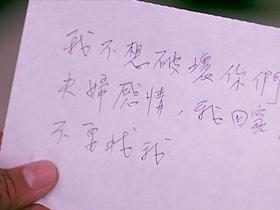 我不想破壞你們
夫婦感情，我回家，
不要找我